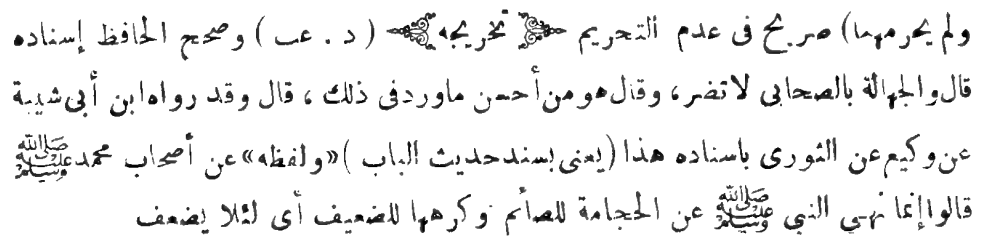 ولم يحرمهما) صريح فى عدم التحريم ﴿تخريجه﴾ (د . عب) وصحح الحافظ إسناده
قال والجهالة بالصحابى لاتضر، وقال هو من أحسن ماورد فى ذلك ، قال وقد رواه ابن أبى شيبة
عن وكيع عن الثورى باسناده هذا (يعنى بسند حديث الباب) «ولفظه» عن أصحاب محمد ﷺ
قالوا إنما نهى النبي ﷺ عن الحجامة للصائم وكرهها للضعيف أى لئلا يضعف